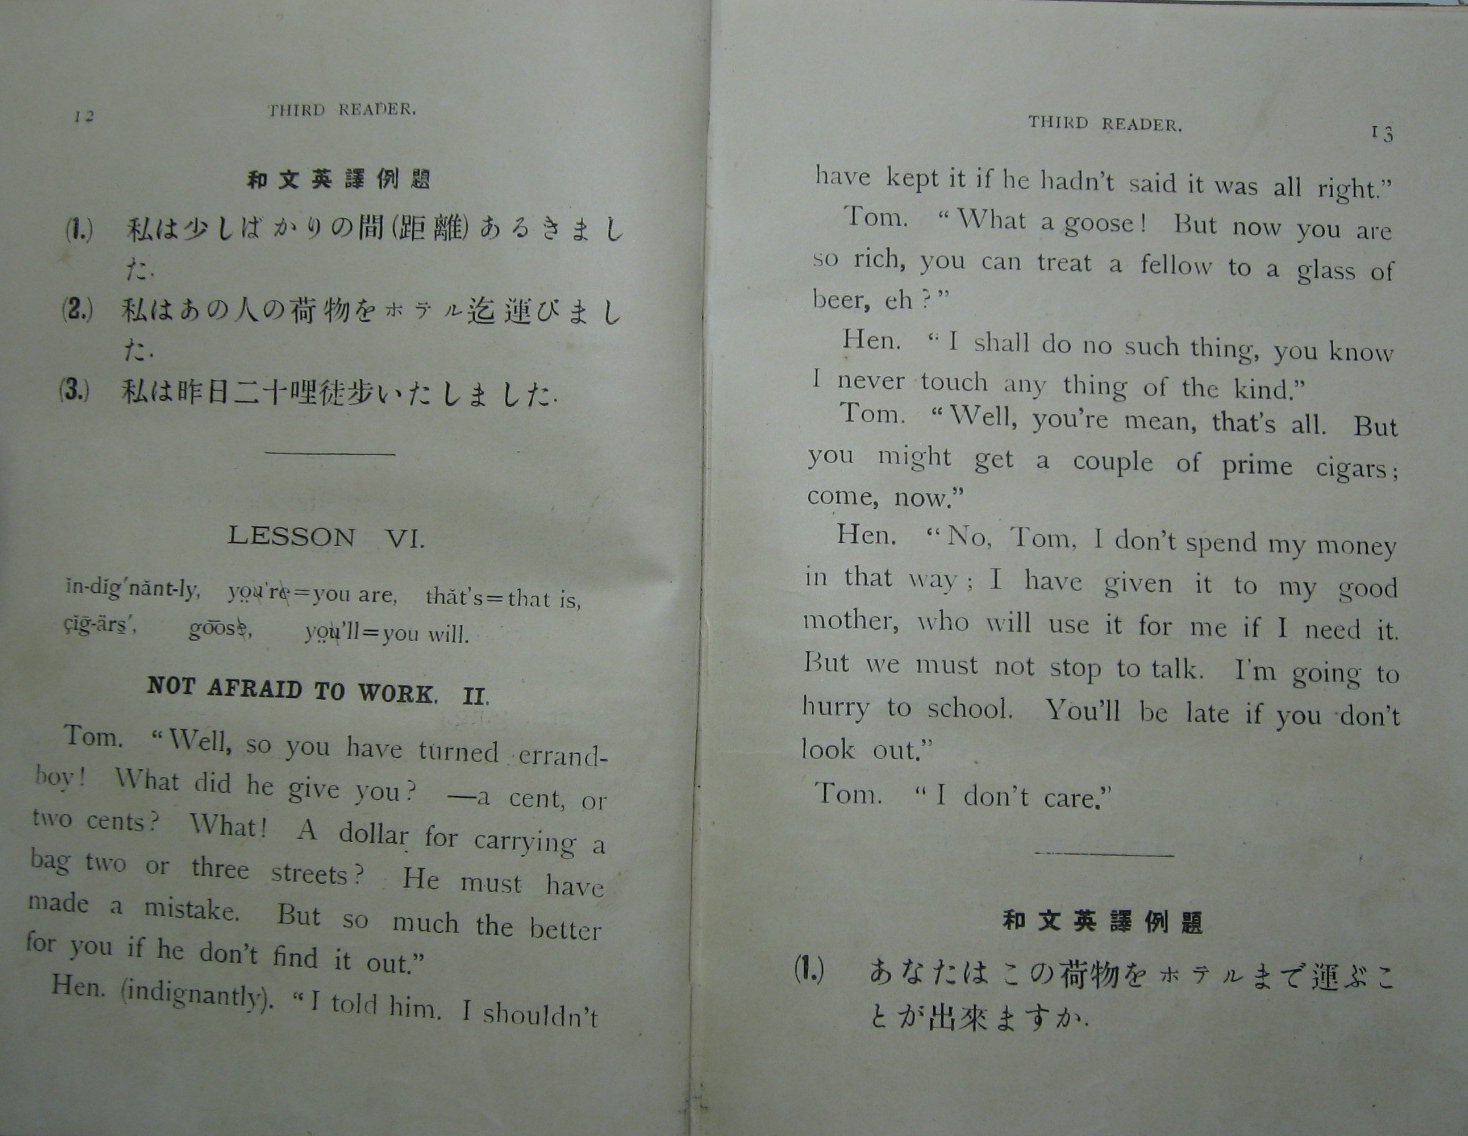 12
THIRD READER.
和文英譯例題
(1.) 私は少しばかりの間(距離)あるきまし
た.
(2.) 私はあの人の荷物をホテル迄運びまし
た.
(3.) 私は昨日二十哩徒歩いたしました.
LESSON VI.
ĭn-dĭg′nănt-ly, you're=you are, thăt's=that is,
çĭḡ-ärs̱′, go͞ose, you'll=you will.
NOT AFRAID TO WORK. II.
Tom. “Well, so you have turned errand-
boy! What did he give you? —a cent, or
two cents? What! A dollar for carrying a
bag two or three streets? He must have
made a mistake. But so much the better
for you if he don't find it out.”
Hen. (indignantly). “I told him. I shouldn't
THIRD READER.
13
have kept it if he hadn't said it was all right.”
Tom. “What a goose! But now you are
so rich, you can treat a fellow to a glass of
beer, eh?”
Hen. “I shall do no such thing, you know
I never touch any thing of the kind.”
Tom. “Well, you're mean, that's all. But
you might get a couple of prime cigars;
come, now.”
Hen. “No, Tom, I don't spend my money
in that way; I have given it to my good
mother, who will use it for me if I need it.
But we must not stop to talk. I'm going to
hurry to school. You'll be late if you don't
look out.”
Tom. “I don't care.”
和文英譯例題
(1.) あなたはこの荷物をホテルまで運ぶこ
とが出來ますか.